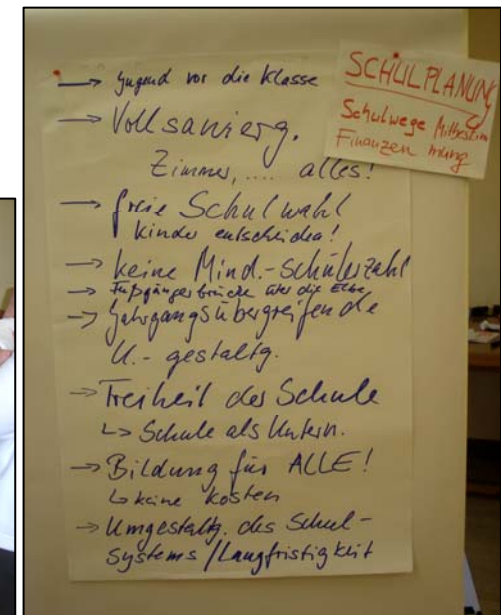 SCHULPLANUNG
Schulwege Mitbestim
Finanzen mung
→ Jugend vor die Klasse
→ Vollsanierg.
Zimmer, .... alles!
→ freie Schulwahl
Kinder entscheiden!
→ keine Mind.-Schülerzahl
→ Fußgängerbrücke über die Elbe
→ Jahrgangsübergreifende
U.-gestaltg.
→ Freiheit der Schule
↳ Schule als Untern.
→ Bildung für ALLE!
↳ keine Kosten
→ Umgestaltg. des Schul-
systems / Langfristigkeit